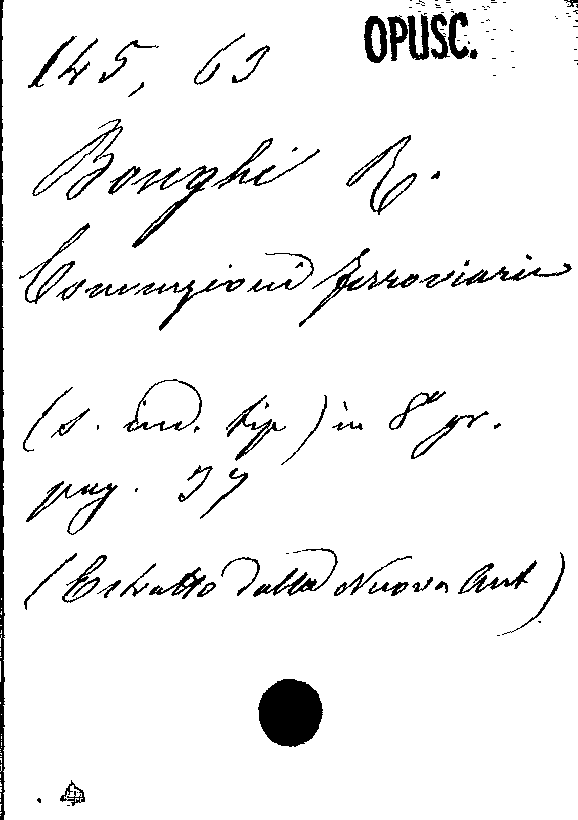 OPUSC.
145, 63
Bonghi R.
Convenzioni ferroviarie
(s. ind. tip) in 8° gr.
pag. 37
(Estratto dalla Nuova Ant)